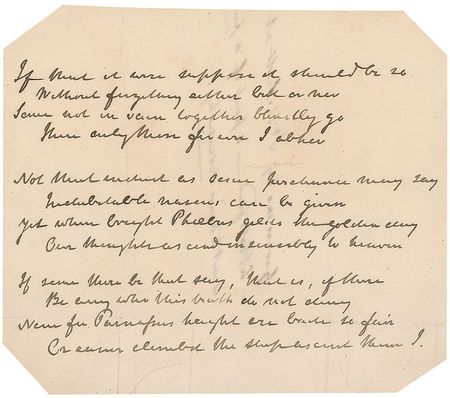 If that it were suppose it should be so
Without forgetting either but or nor
Some not in vain together blindly go
Then only I abhor
Not that indeed as some perchance may say
Indubitable reasons can be given
Yet when bright Phœbus gilds the golden day
Our thoughts ascend insensibly to heaven
If some there be that say, that is, if there
Be any who this truth do not deny
None for Parnassus height ere bade so fair
Or easier climbed the steep ascent than I.